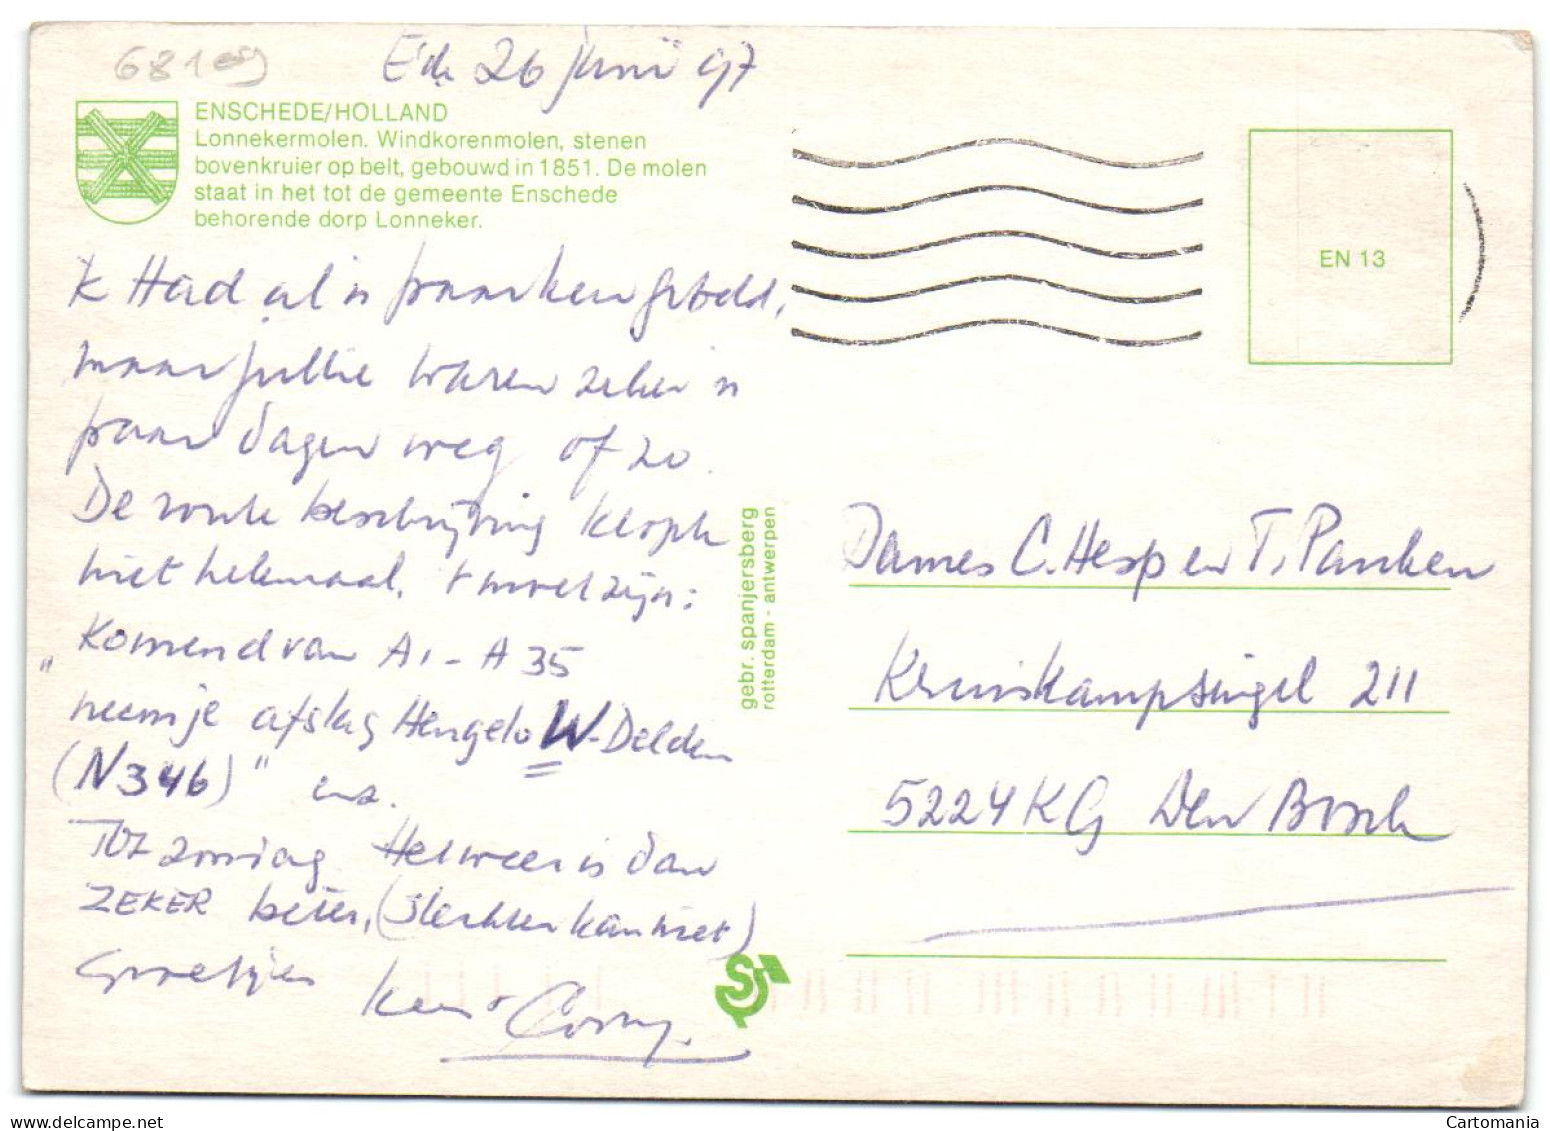 68109
26 juni 97
ENSCHEDE/HOLLAND
Lonnekermolen. Windkorenmolen, stenen
bovenkruier op belt, gebouwd in 1851. De molen
staat in het tot de gemeente Enschede
behorende dorp Lonneker.
EN 13
Ik Had al 'n paar keer gebeld,
maar jullie waren zeker 'n
paar dagen weg of zo.
De route beschrijving klopte
niet helemaal, 't moet zijn:
"Komend van A1-A35
neem je afslag Hengelo W-Delden
(N346)" enz.
Tot zondag Het weer is dan
ZEKER beter, (slechter kan niet)
Groetjes
Corry.
gebr. spanjersberg
rotterdam - antwerpen
Dames C. Hesp en T. Panken
Kruiskampsingel 211
5224 KG Den Bosch
Cartomania